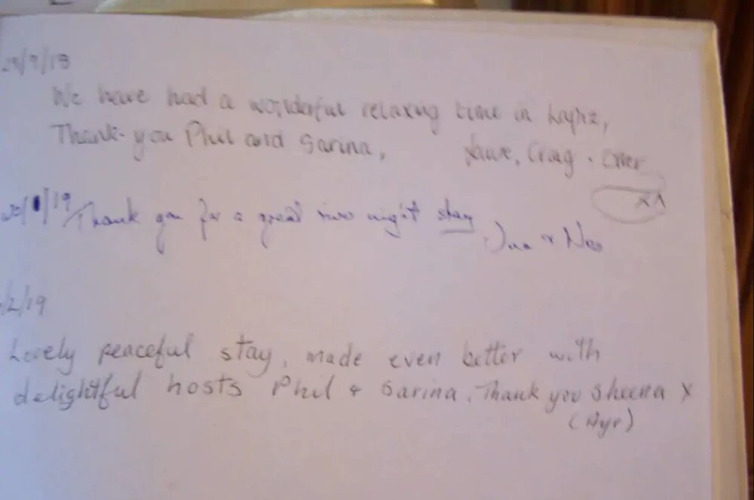 We have had a wonderful relaxing time in
Thank you Phil and Sarina, Craig
/19 Thank you for a great night stay
/2/19
Lovely peaceful stay, made even better with
delightful hosts Phil & Sarina. Thank you Sheena x
(Ayr)